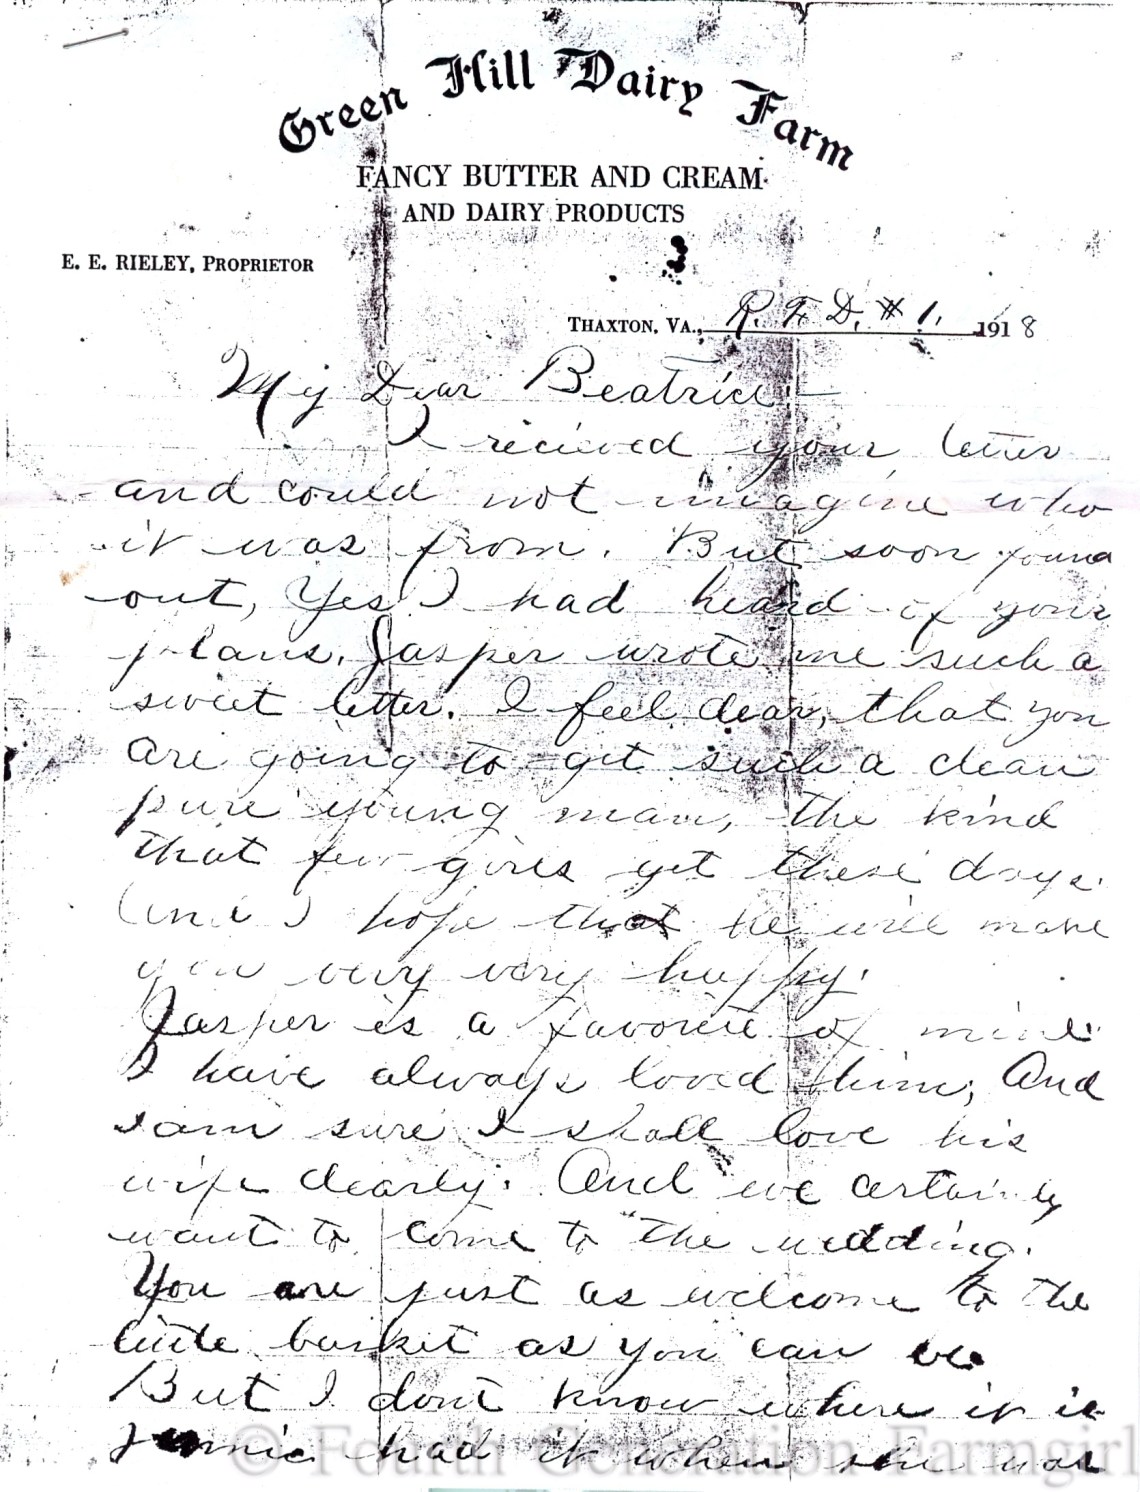 Green Hill Dairy Farm
FANCY BUTTER AND CREAM
AND DAIRY PRODUCTS
E. E. RIELEY, PROPRIETOR
THAXTON, VA., R. F. D. # 1. 1918
My Dear Beatrice:-
I recieved your letter
and could not imagine who
it was from. But soon found
out, Yes I had heard of your
plans. Jasper wrote me such a
sweet letter. I feel dear, that you
are going to get such a clean
pure young man, the kind
that few girls get these days.
And I hope that he will make
you very very happy.
Jasper is a favorite of mine.
I have always loved him, And
I am sure I shall love his
wife dearly. And we certainly
want to come to "the wedding.
You are just as welcome to the
little basket as you can be
But I dont know where it is
had it when she was
© Fourth Generation Farmgirl